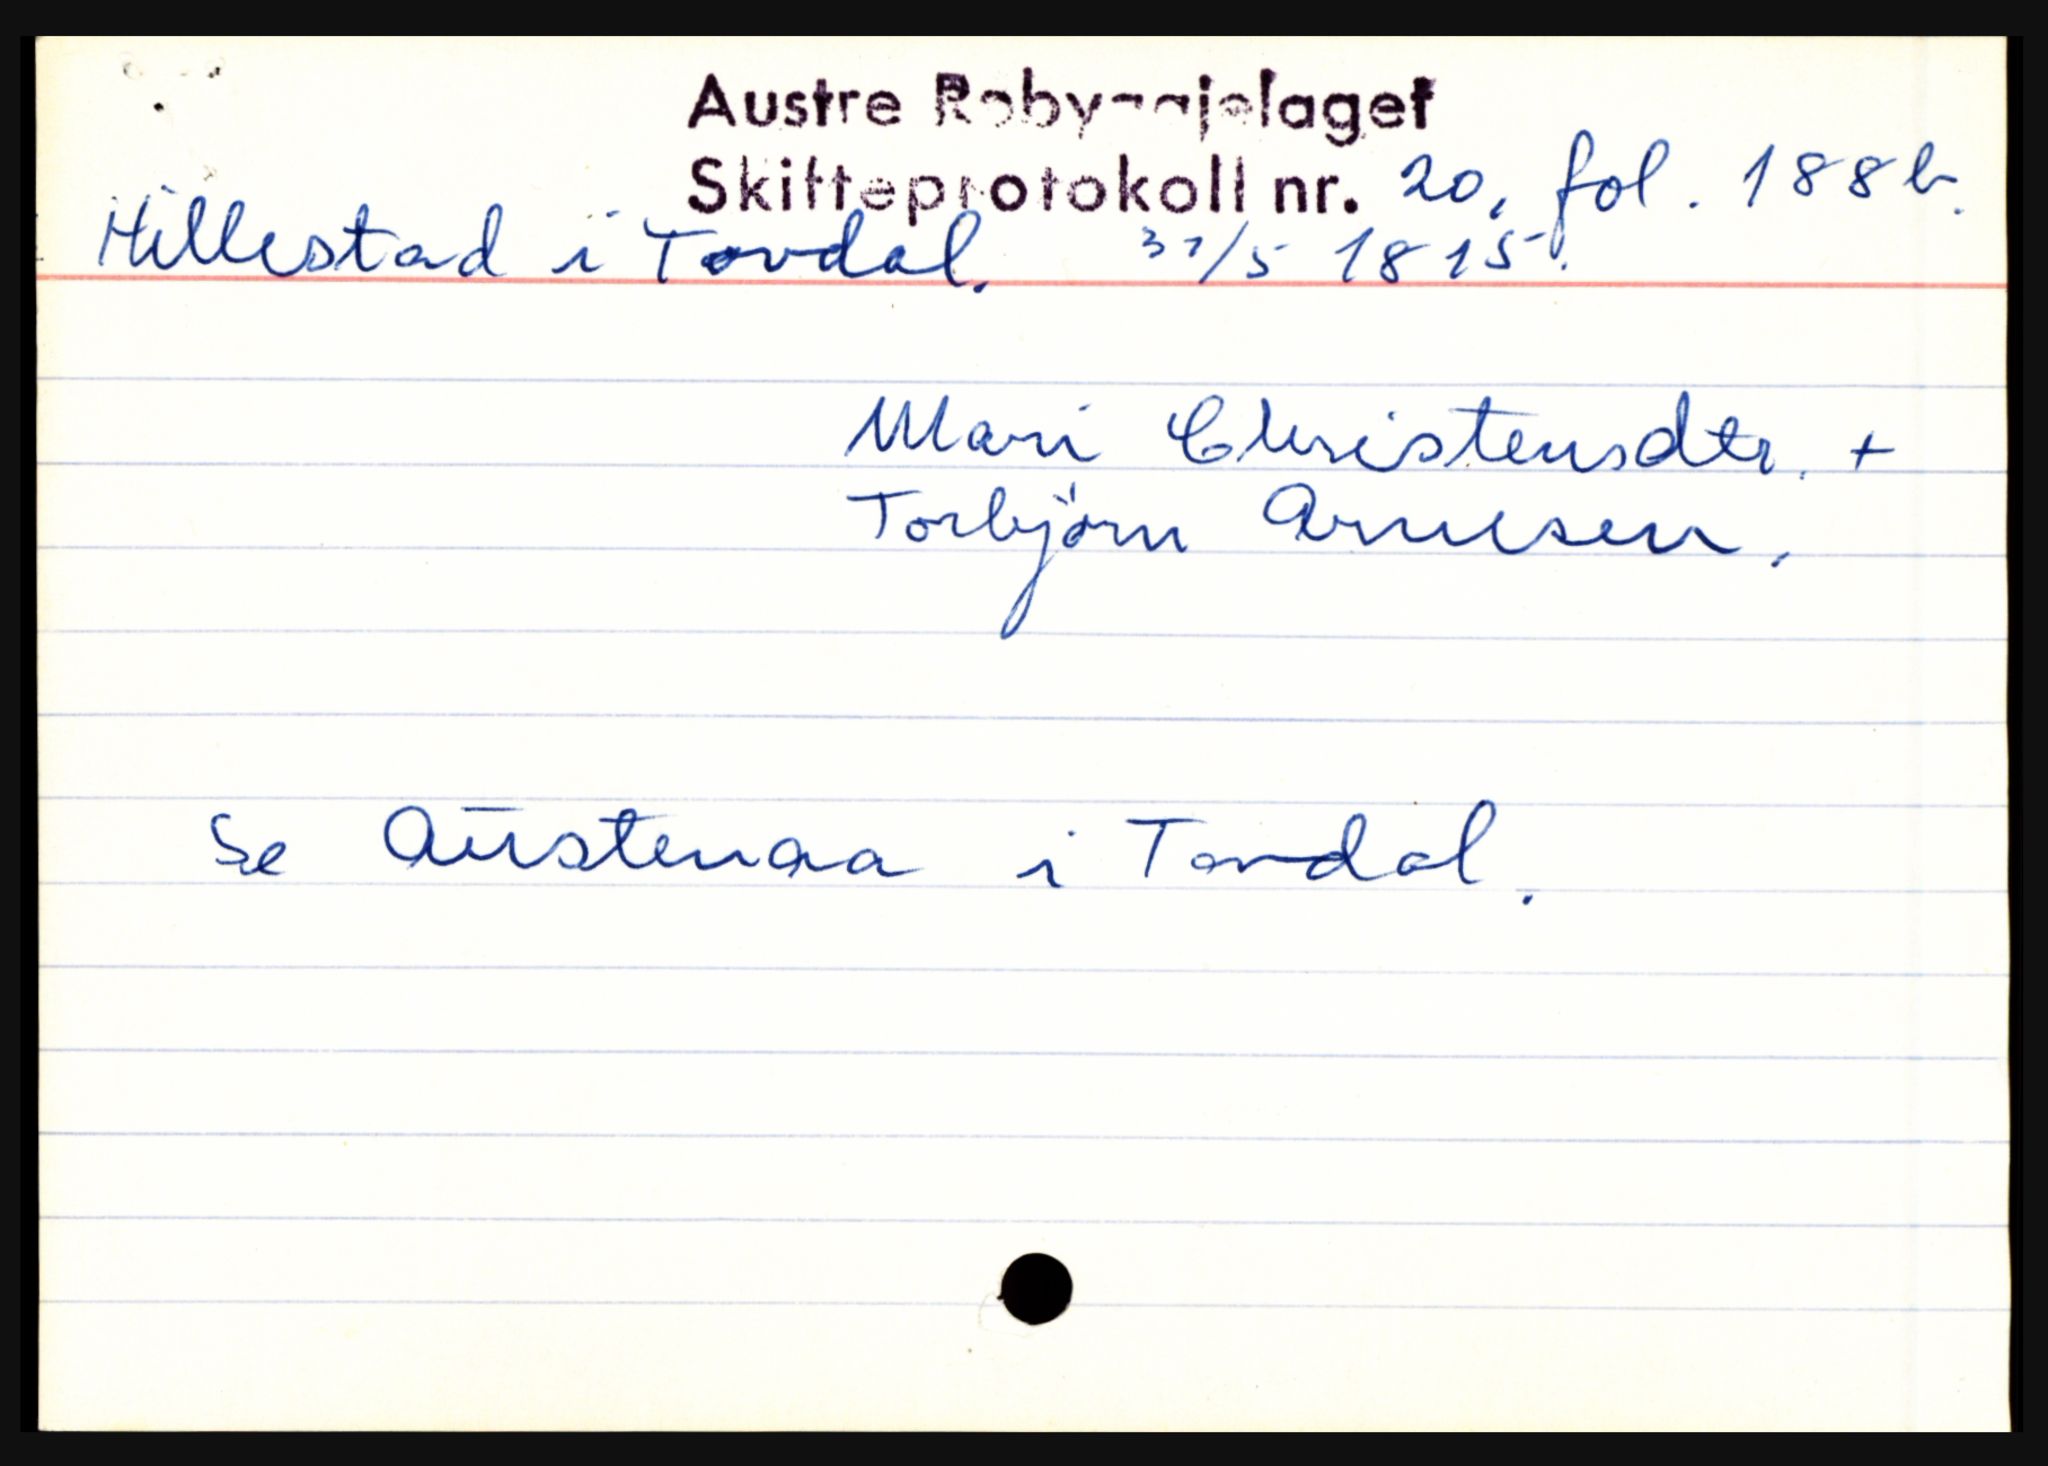 Austre Robyggjelaget
Skifteprotokoll nr. 20, fol. 188b.
Hillestad i Tovdal. 31/5 1815.
Mari Christensdtr. +
Torbjörn Arnesen.
Se Aūstenaa i Tovdal.